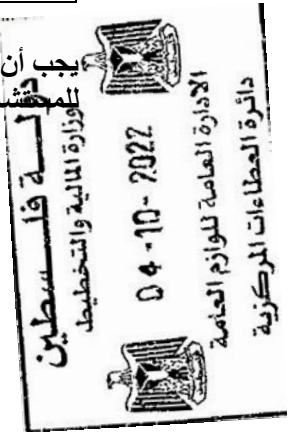 يجب أن
دولة فلسطين
وزارة المالية والتخطيط
04-10-2022
الادارة العامة للوازم العامة
دائرة العطاءات المركزية